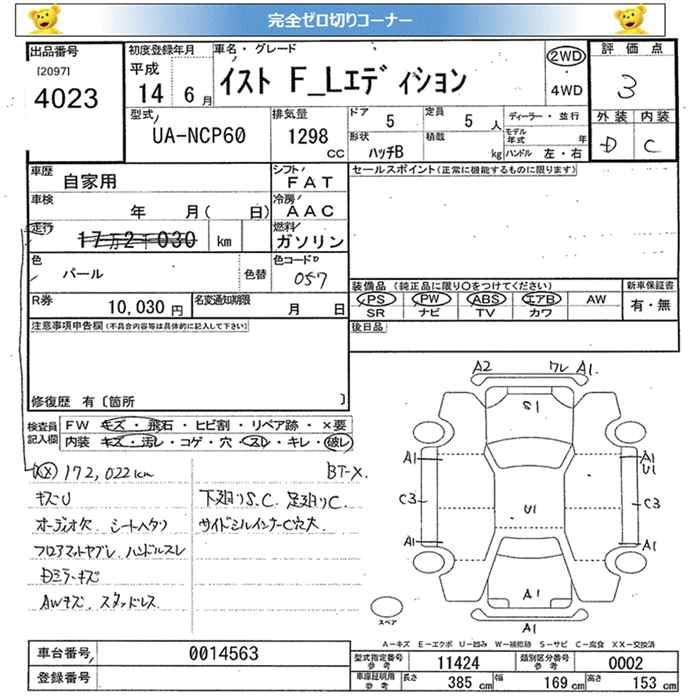 完全ゼロ切りコーナー
出品番号
[2097]
4023
初度登録年月
平成
14 6月
車名・グレード
イスト F_Lエディション
2WD
4WD
評価点
3
外装 内装
D C
型式
UA-NCP60
排気量
1298
CC
ドア 5
定員 5人
形状
ハッチB
積載
kg
ディーラー・並行
モデル年式 年
ハンドル 左・右
車歴
自家用
シフト
FAT
車検
年 月( 日)
冷房
AAC
走行
17万2千030 km
燃料
ガソリン
色
パール
色替
色コード
057
R券
10,030円
名変通知期限
月 日
セールスポイント(正常に機能するものに限ります)
装備品 (純正品に限り○をつけてください)
PS PW ABS エアB AW
SR ナビ TV カワ
新車保証書
有・無
後日品
注意事項申告欄(不具合内容等は具体的に記入して下さい)
修復歴 有〔箇所 〕
検査員記入欄
FW キズ・飛石・ヒビ割・リペア跡・×要
内装 キズ・汚レ・コゲ・穴・スレ・キレ・破レ
172,022km
BT-X.
キズU
オーディオ欠. シートヘタリ
フロアマットヤブレ. ハンドルスレ
Dミラーキズ
AWキズ. スタッドレス.
下廻りS.C. 足廻りC.
サイドシルインナーC穴大.
A2 ワレ A1
S1
A1 A1
U1
C3 U1 C3
A1 A1
A1
A1
スペア
A-キズ E-エクボ U-凹み W-補修跡 S-サビ C-腐食 XX-交換済
車台番号
0014563
登録番号
型式指定番号参考
11424
類別区分番号参考
0002
車庫証明用参考
長さ 385 cm 幅 169 cm 高さ 153 cm